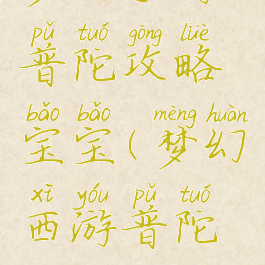 pǔ tuó gōng lüè
普陀攻略
bǎo bǎo mèng huàn
宝宝(梦幻
xī yóu pǔ tuó
西游普陀